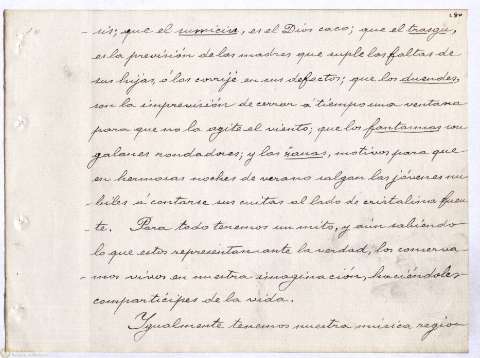 - sis; que el sumiciu, es el Dios caco; que el trasgu,
es la previsión de las madres que suple las faltas de
sus hijas, ó los corrije en sus defectos; que los duendes,
son la imprevisión de cerrar a tiempo una ventana
para que no la agite el viento; que los fantasmas son
galanes rondadores; y las xanas, motivos para que
en hermosas noches de verano salgan las jóvenes nu-
- biles á contarse sus cuitas al lado de cristalina fuen-
- te. Para todo tenemos un mito, y aún sabiendo
lo que estos representan ante la verdad, los conserva-
- mos vivos en nuestra imaginación, haciéndoles
compartícipes de la vida.
Ygualmente tenemos nuestra música region